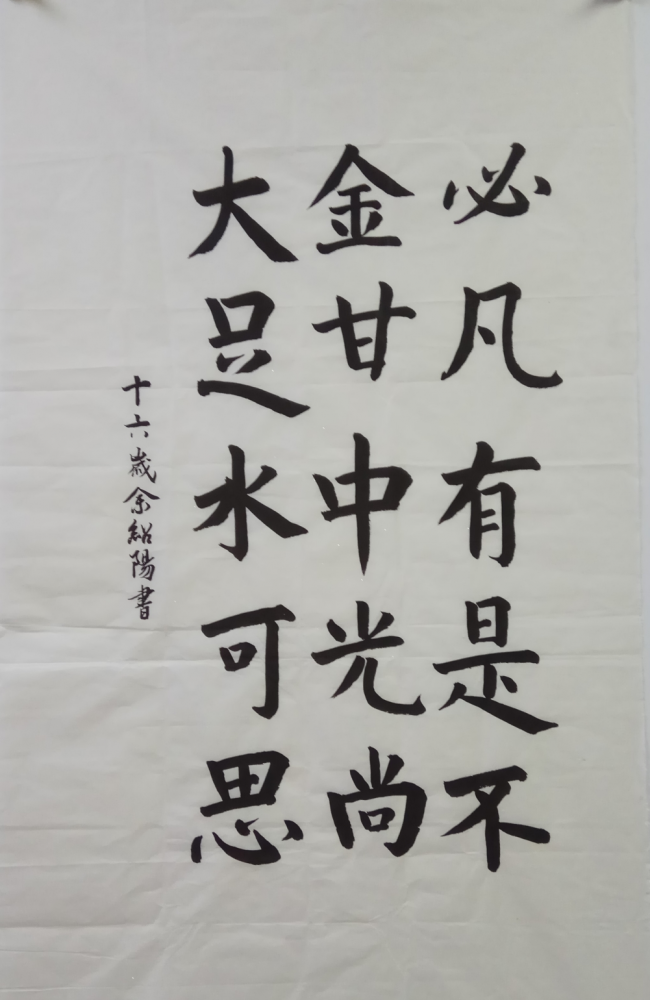 必凡有是不
金甘中光尚
大足水可思
十六歲余紹陽書